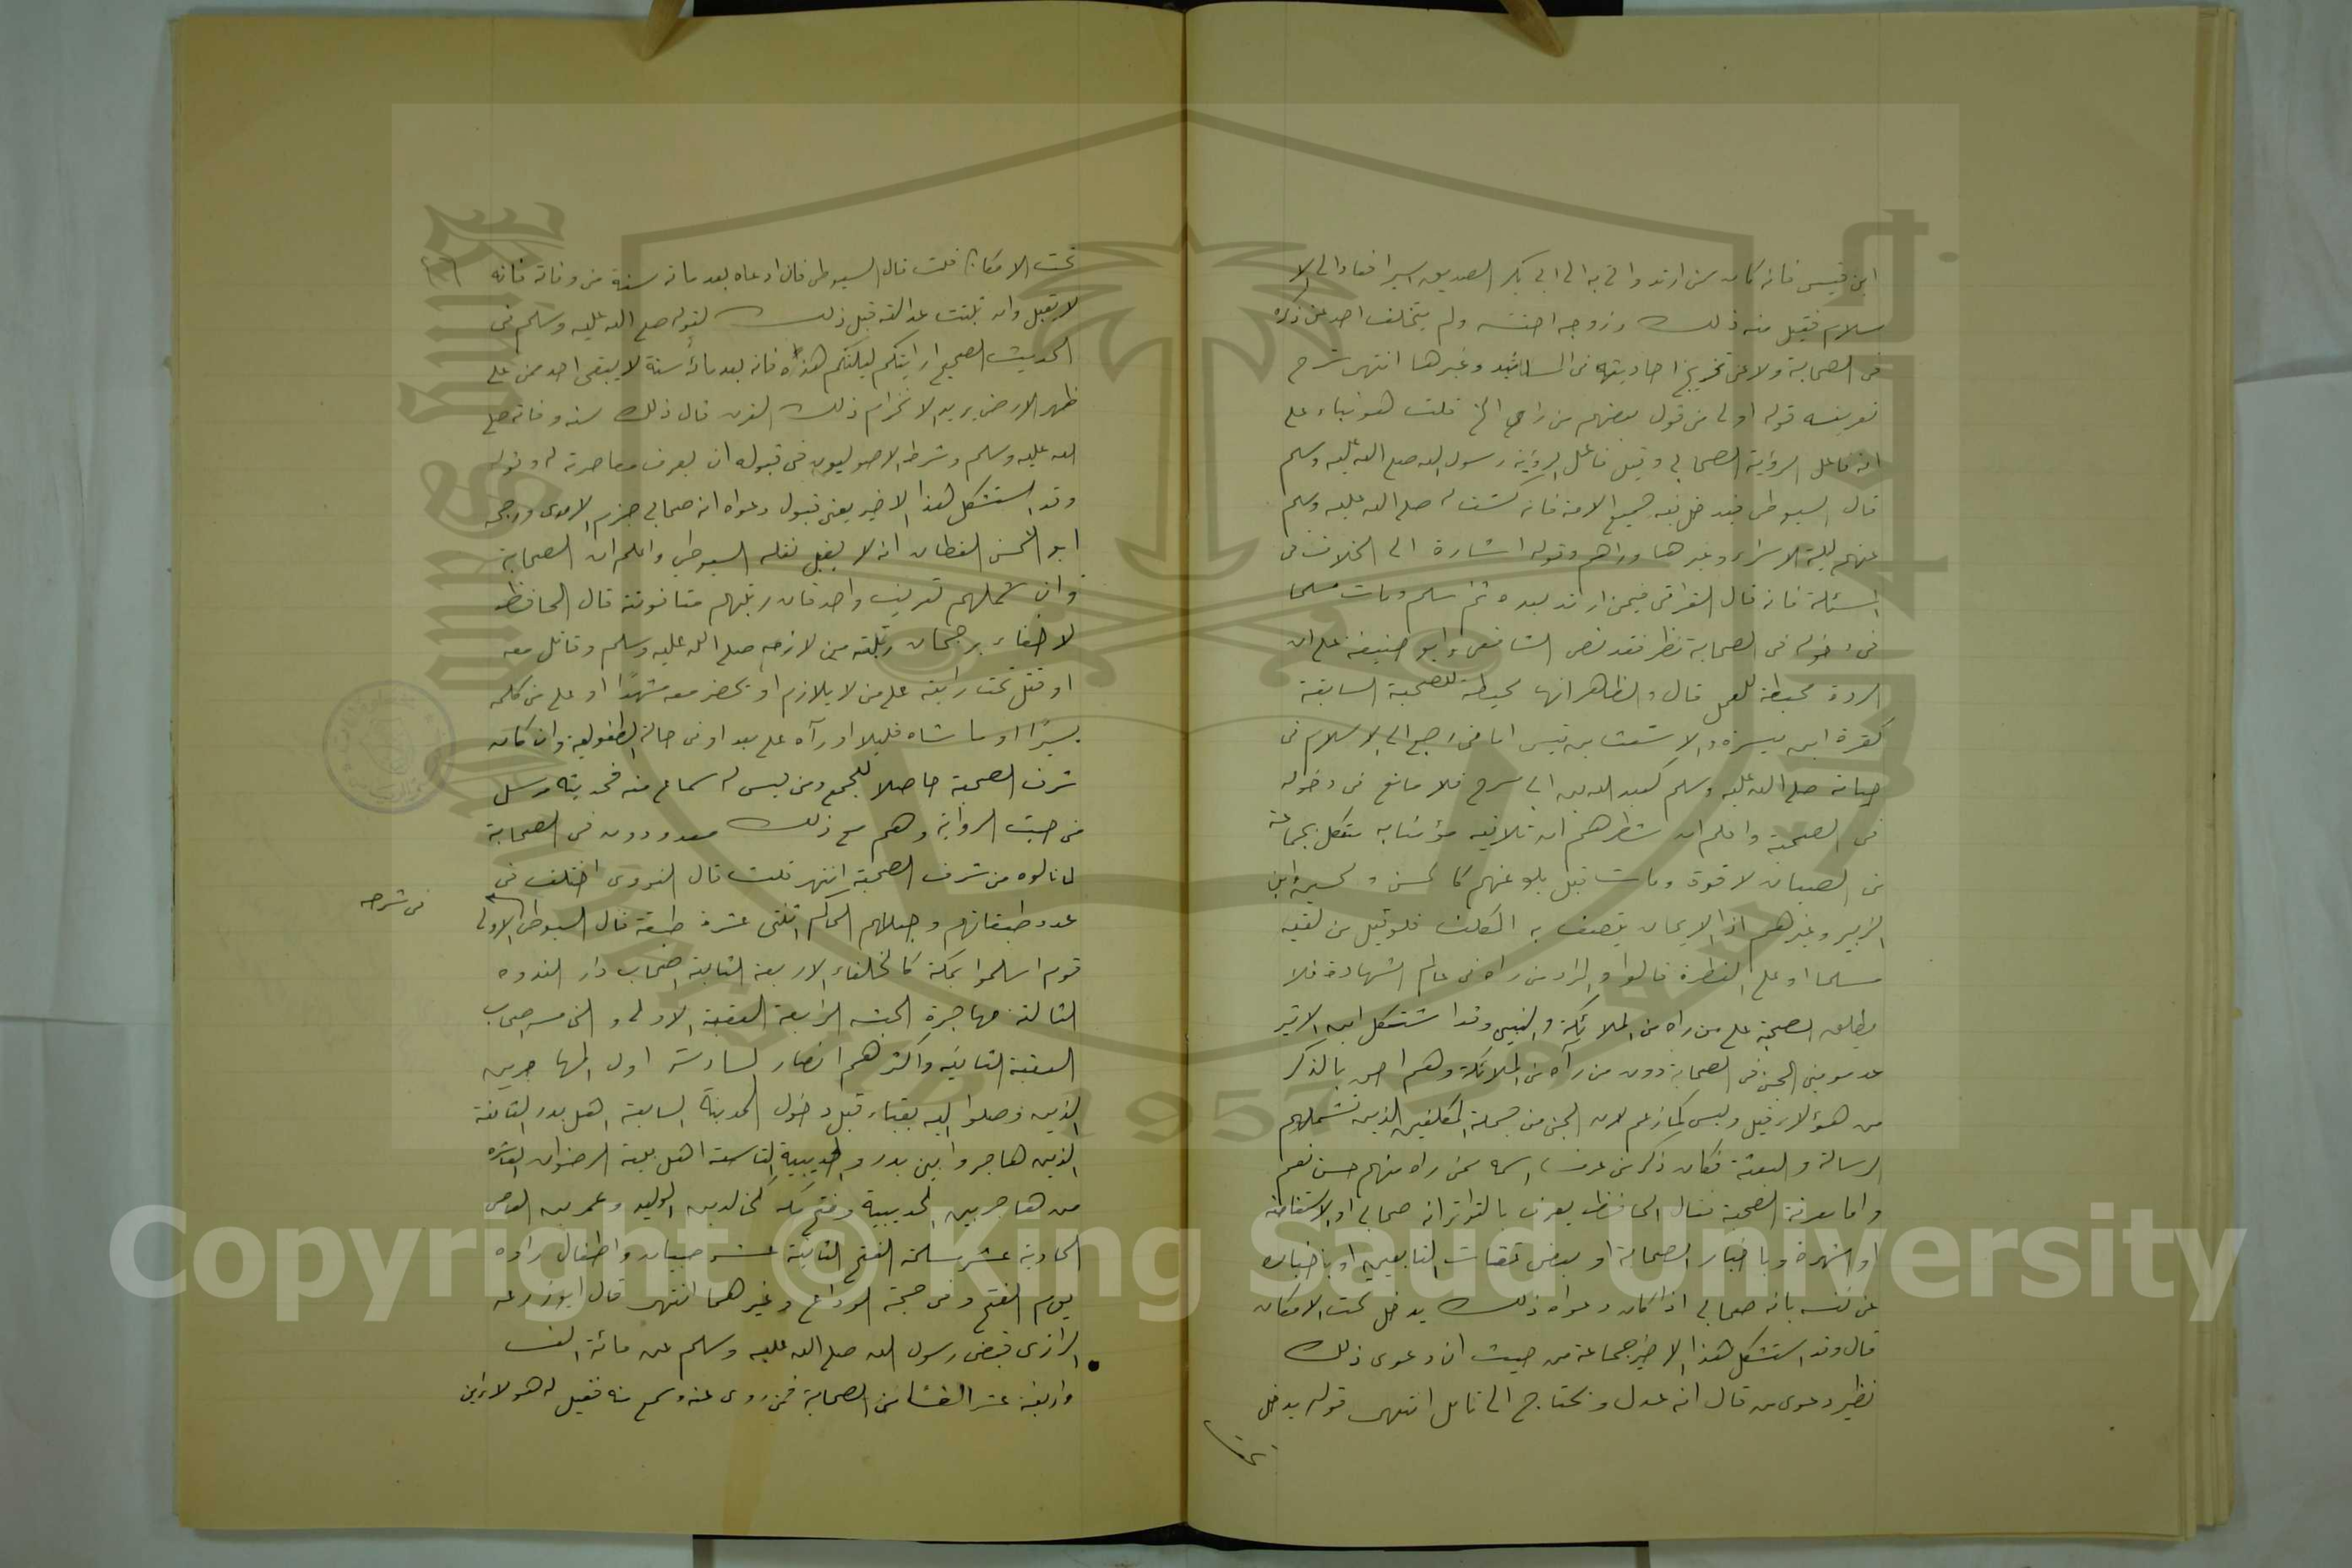 ابن قيس فانه كان من ارتد واتي به الى ابي بكر الصديق اسيرا فعاد الى الا
سلام فقبل منه ذلك وزوجه اخته ولم يتخلف احد عن ذكره
في الصحابة ولا عن تخريج احاديثه في المسانيد وغيرها انتهى شرح
تعريفه قوله اولى من قول بعضهم من راى الخ قلت هو بناء على
انه فاعل الرؤية الصحابي وقيل فاعل الرؤية رسول الله صلى الله عليه وسلم
قال السيوطي فيدخل فيه جميع الامة فانه كشف له صلى الله عليه وسلم
عنهم ليلة الاسراء وغيرها وراهم وقوله اشارة الى الخلاف في
المسئلة فانه قال العراقي فيمن ارتد بعده ثم اسلم ومات مسلما
في دخوله في الصحابة نظر فقد نص الشافعي وابو حنيفة على ان
الردة محبطة للعمل قال والظاهر انها محبطة للصحبة السابقة
كقرة ابن ميسرة والاشعث بن قيس اما من رجع الى الاسلام في
حياته صلى الله عليه وسلم كعبد الله بن ابي سرح فلا مانع في دخوله
في الصحبة واعلم ان شطرهم ان تلاقيه مؤمنا به مشكل بجماعة
من الصبيان لا قوه ومات قبل بلوغهم كالحسن والحسين وابن
الزبير وغيرهم اذ الايمان يتصف به المكلف فلو قيل من لقيه
مسلما او على الفطرة قالوا والمراد من راه في عالم الشهادة فلا
يطلق الصحبة على من راه من الملائكة والنبيين وقد استشكل ابن الاثير
عد مومني الجن في الصحابة دون من رآه من الملائكة وهم احق بالذكر
من هؤلاء قيل وليس كما زعم لان الجن من جملة المكلفين الذين تشملهم
الرسالة والبعثة فكان ذكر من عرف اسمه ممن راه منهم حسن نعم
واما معرفة الصحبة فقال الحافظ يعرف بالتواتر انه صحابي او الاستفاضة
او الشهرة وباخبار الصحابة او بعض ثقات التابعين او باخباره
عن نفسه بانه صحابي اذا كان دعواه ذلك يدخل تحت الامكان
قال وقد استشكل هذا الاخير جماعة من حيث ان دعوى ذلك
نظير دعوى من قال انه عدل ويحتاج الى تامل انتهى قوله يدخل
تحت
تحت الامكان قلت قال السيوطي فان ادعاه بعد مائة سنة من وفاته فانه
لا يقبل وان ثبتت عدالته قبل ذلك لقوله صلى الله عليه وسلم في
الحديث الصحيح ارايتكم ليلتكم هذه فانه بعد مائة سنة لا يبقى احد ممن على
ظهر الارض يريد انخرام ذلك القرن قال ذلك سنة وفاته صلى
الله عليه وسلم وشرط الاصوليون في قبوله ان يعرف معاصرته له وقوله
وقد استشكل هذا الاخير يعني قبول دعواه انه صحابي جزم الامدي ورجح
ابو الحسن القطان انه لا يقبل نقله السيوطي واعلم ان الصحابة
وان شملهم تعريف واحد فان رتبهم متفاوتة قال الحافظ
لا خفاء برجحان رتبة من لازمه صلى الله عليه وسلم وقاتل معه
او قتل تحت رايته على من لا يلازم او يحضر معه مشهدا او على من كلمه
يسيرا او ماشاه قليلا او رآه على بعد او في حالة الطفولية وان كان
شرف الصحبة حاصلا للجميع ومن ليس له سماع منه فحديثه مرسل
من حيث الرواية وهم مع ذلك معدودون في الصحابة
لما نالوه من شرف الصحبة انتهى قلت قال النووي اختلف في
عدد طبقاتهم وجعلهم الحاكم اثنتي عشرة طبقة قال السيوطي الاولى
في شرحه
قوم اسلموا بمكة كالخلفاء الاربعة الثانية اصحاب دار الندوه
الثالثة مهاجرة الحبشة الرابعة العقبة الاولى والخامسة اصحاب
العقبة الثانية واكثرهم انصار السادسة اول المهاجرين
الذين وصلوا اليه بقباء قبل دخول المدينة السابعة اهل بدر الثامنة
الذين هاجروا بين بدر والحديبية التاسعة اهل بيعة الرضوان العاشرة
من هاجر بين الحديبية وفتح مكة كخالد بن الوليد وعمر بن العاص
الحادية عشر مسلمة الفتح الثانية عشر صبيان واطفال راوه
يوم الفتح وفي حجة الوداع وغيرهما انتهى قال ابو زرعه
الرازي قبض رسول الله صلى الله عليه وسلم عن مائة الف
واربعة عشر الفا من الصحابة ممن روى عنه وسمع منه فقيل له هولاء اين
Copyright © King Saud University
1957